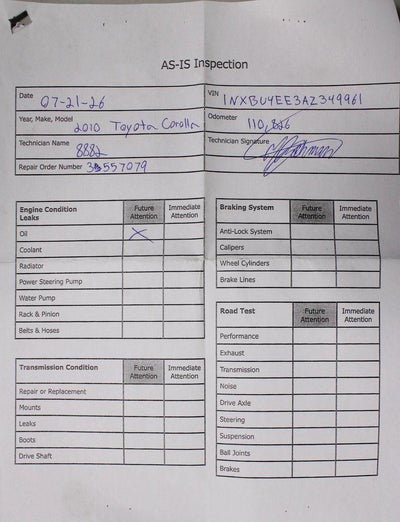 AS-IS Inspection
Date 07-21-26
VIN 1NXBU4EE3AZ349961
Year, Make, Model 2010 Toyota Corolla
Odometer 110,826
Technician Name 8882
Technician Signature
Repair Order Number 35557079
Engine Condition Leaks Future Attention Immediate Attention
Oil X
Coolant
Radiator
Power Steering Pump
Water Pump
Rack & Pinion
Belts & Hoses
Transmission Condition Future Attention Immediate Attention
Repair or Replacement
Mounts
Leaks
Boots
Drive Shaft
Braking System Future Attention Immediate Attention
Anti-Lock System
Calipers
Wheel Cylinders
Brake Lines
Road Test Future Attention Immediate Attention
Performance
Exhaust
Transmission
Noise
Drive Axle
Steering
Suspension
Ball Joints
Brakes